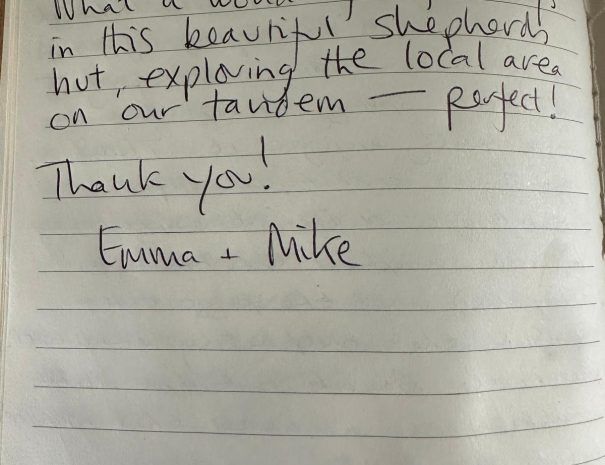 What a
in this beautiful shepherds
hut, exploring the local area
on our tandem — perfect!
Thank you!
Emma + Mike